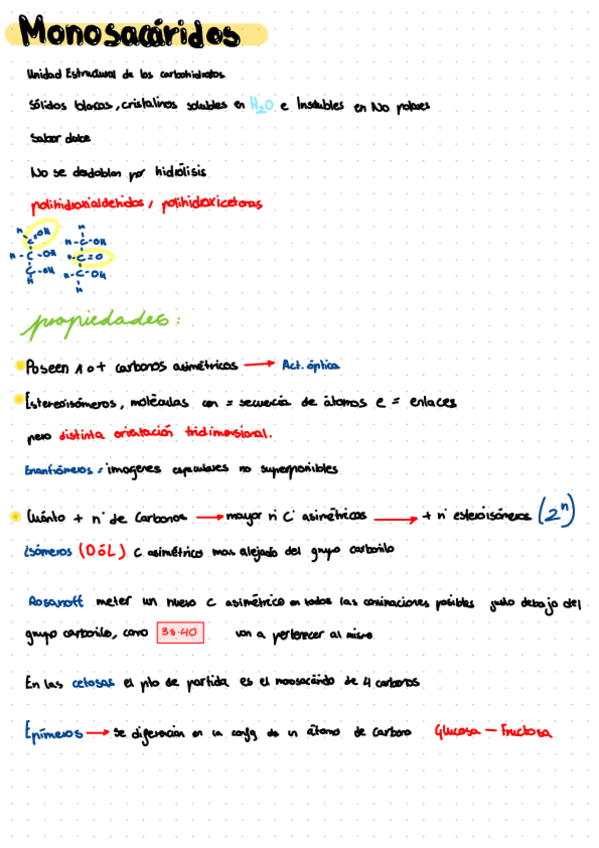 Monosacáridos
Unidad Estructural de los carbohidratos
Sólidos blancos, cristalinos solubles en H2O e Insolubles en No polares
Sabor dulce
No se desdoblan por hidrólisis
polihidroxialdehidos / polihidroxicetonas
propiedades:
Poseen 1 o + carbonos asimétricos → Act. óptica
Estereoisómeros, moléculas con = secuencia de átomos e = enlaces
pero distinta orientación tridimensional.
Enantiómeros = imagenes especulares no superponibles
Cuánto + nº de Carbonos → mayor nº C asimétricos → + nº esteroisómeros (2^n)
isómeros (D ó L) C asimétrico mas alejado del grupo carbonilo
Rosanoff meter un nuevo C asimétrico en todas las cominaciones posibles justo debajo del
grupo carbonilo, como 38-40 van a pertenecer al mismo
En las cetosas el pto de partida es el monosacárido de 4 carbonos
Epímeros → se diferencian en la config de un átomo de carbono Glucosa – Fructosa